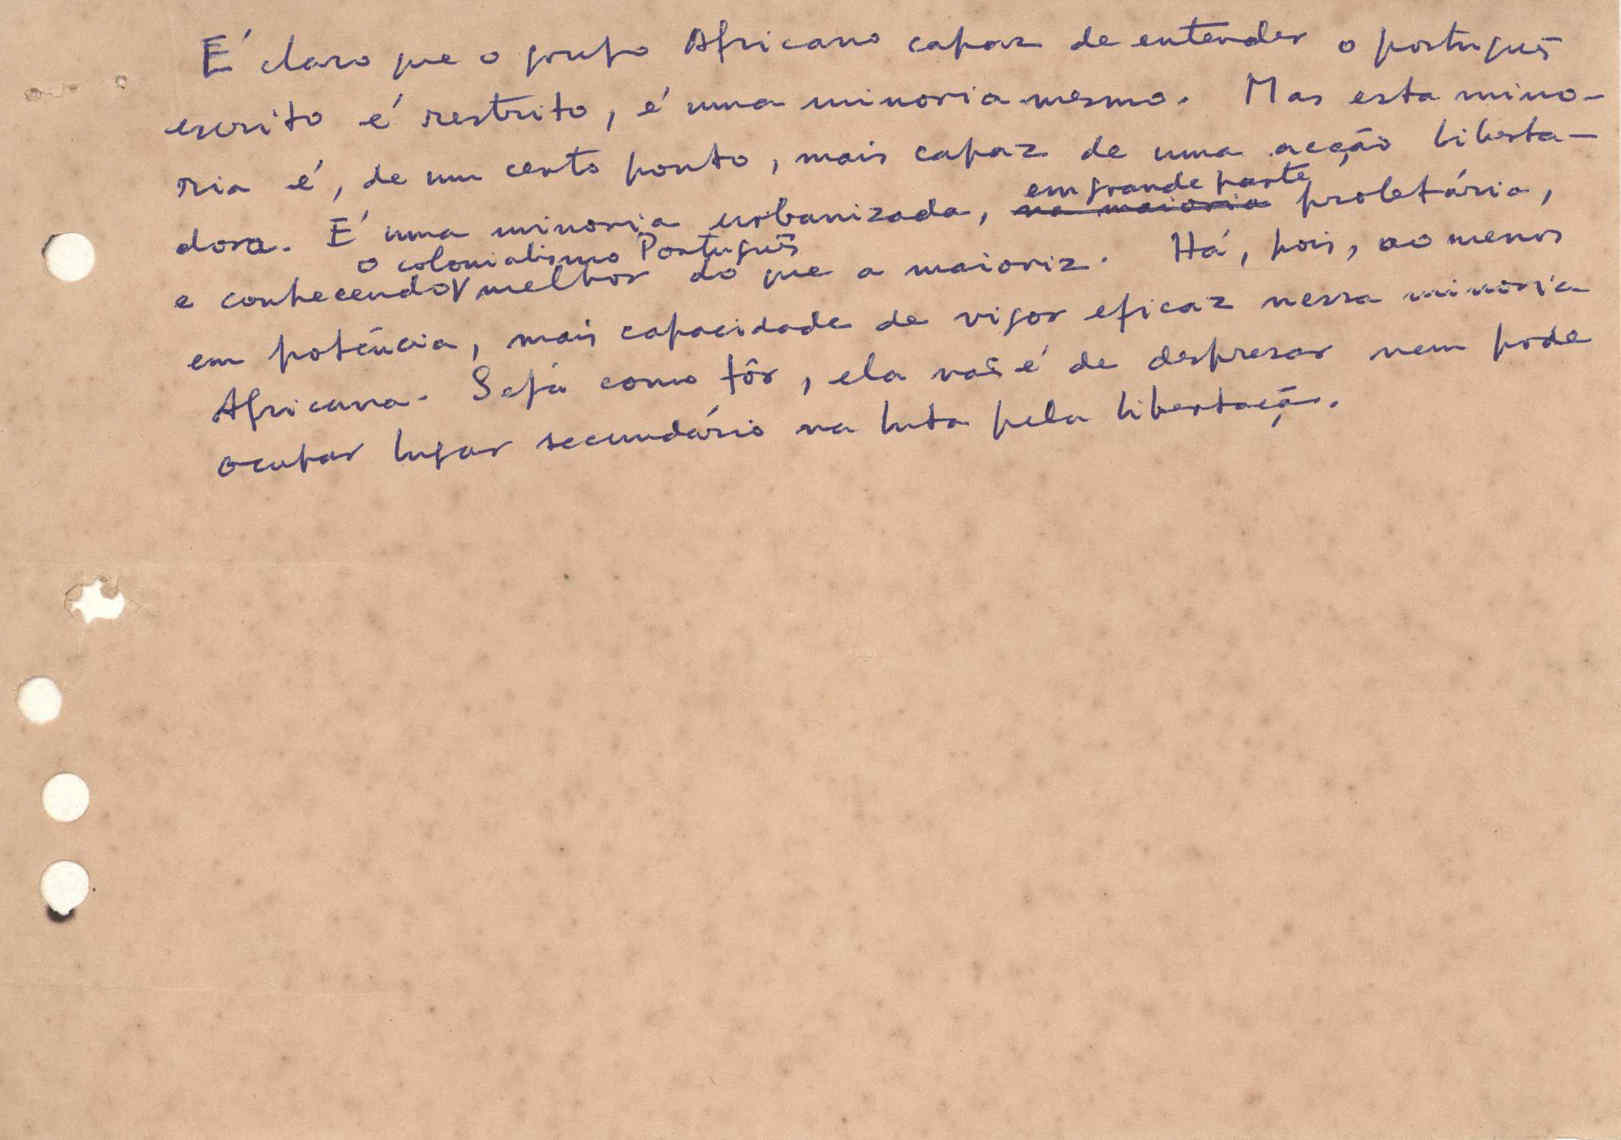 É claro que o grupo Africano capaz de entender o português
escrito é restrito, é uma minoria mesmo. Mas esta mino-
ria é, de um certo ponto, mais capaz de uma acção liberta-
em grande parte
dora. É uma minoria urbanizada, na maioria proletária,
o colonialismo Português
e conhecendo melhor do que a maioria. Há, pois, ao menos
em potência, mais capacidade de vigor eficaz nessa minoria
Africana. Seja como fôr, ela não é de despresar nem pode
ocupar lugar secundário na luta pela libertação.